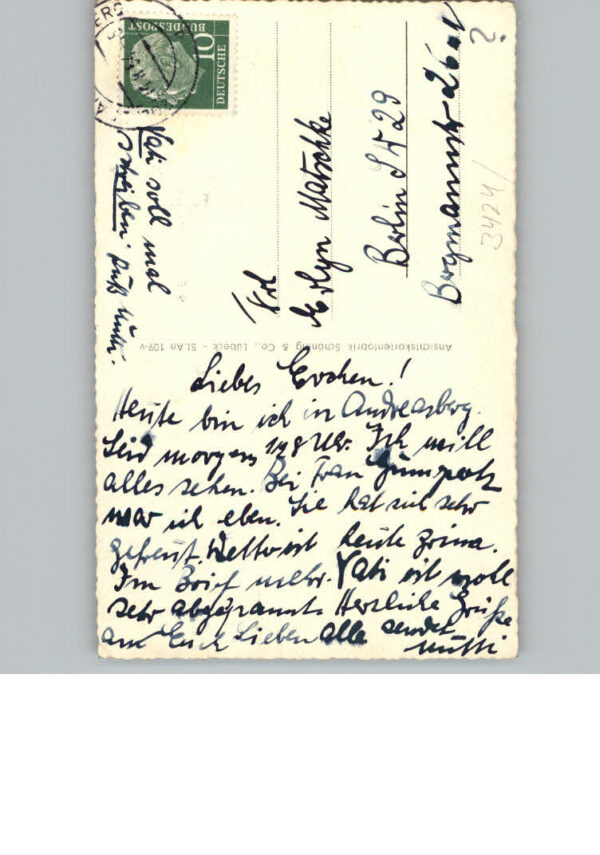 Liebes Evchen!
Heute bin ich in Andreasberg.
Seid morgens 1/2 8 Uhr. Ich will
alles sehen. Bei Frau
war ich eben. Sie hat sich sehr
gefreut. Wetter ist heute prima.
Im Brief mehr. Vati ist wohl
sehr abgespannt. Herzliche Grüße
an Euch Lieben alle sendet
Mutti
Vati soll mal
schreiben. Mutti.
Frl
Evelyn Matschke
Berlin SW 29
Bergmannstr
2.
2424/
Ansichtskartenfabrik Schöning & Co., Lübeck - St. An 109-v
10
DEUTSCHE
BUNDESPOST